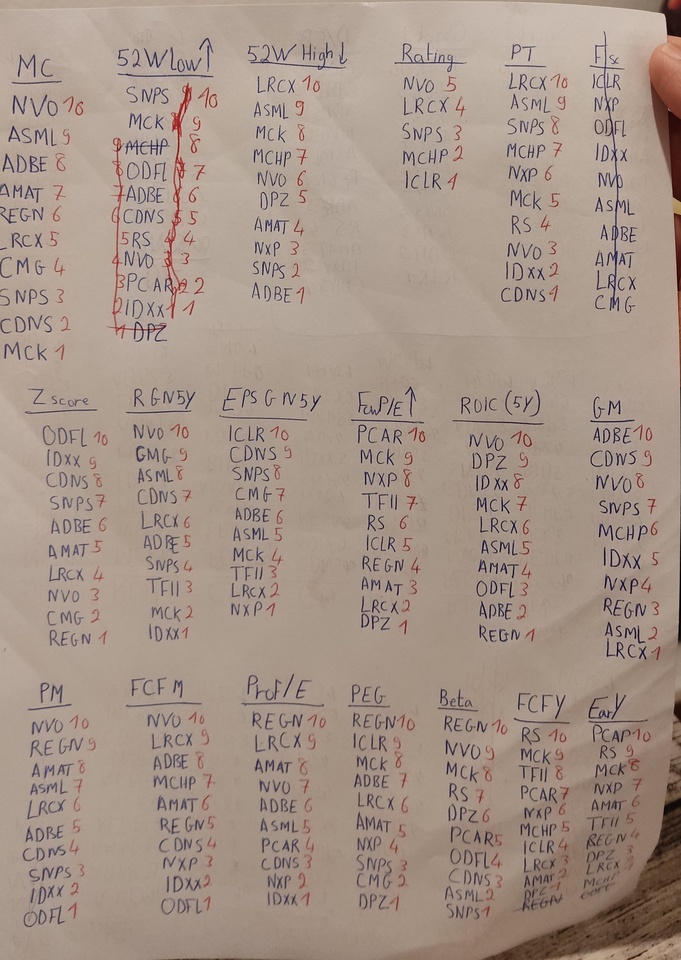 MC
NVO 10
ASML 9
ADBE 8
AMAT 7
REGN 6
LRCX 5
CMG 4
SNPS 3
CDNS 2
MCK 1
52W Low ↑
SNPS 10
MCK 9
9 MCHP 8
8 ODFL 7
7 ADBE 6
6 CDNS 5
5 RS 4
4 NVO 3
3 PCAR 2
2 IDXX 1
1 DPZ
52W High ↓
LRCX 10
ASML 9
MCK 8
MCHP 7
NVO 6
DPZ 5
AMAT 4
NXP 3
SNPS 2
ADBE 1
Rating
NVO 5
LRCX 4
SNPS 3
MCHP 2
ICLR 1
PT
LRCX 10
ASML 9
SNPS 8
MCHP 7
NXP 6
MCK 5
RS 4
NVO 3
IDXX 2
CDNS 1
ICLR
NXP
ODFL
IDXX
NVO
ASML
ADBE
AMAT
LRCX
CMG
Z score
ODFL 10
IDXX 9
CDNS 8
SNPS 7
ADBE 6
AMAT 5
LRCX 4
NVO 3
CMG 2
REGN 1
R GN5Y
NVO 10
CMG 9
ASML 8
CDNS 7
LRCX 6
ADBE 5
SNPS 4
TFII 3
MCK 2
IDXX 1
EPS G N5Y
ICLR 10
CDNS 9
SNPS 8
CMG 7
ADBE 6
ASML 5
MCK 4
TFII 3
LRCX 2
NXP 1
FwP/E ↑
PCAR 10
MCK 9
NXP 8
TFII 7
RS 6
ICLR 5
REGN 4
AMAT 3
LRCX 2
DPZ 1
ROIC (5Y)
NVO 10
DPZ 9
IDXX 8
MCK 7
LRCX 6
ASML 5
AMAT 4
ODFL 3
ADBE 2
REGN 1
GM
ADBE 10
CDNS 9
NVO 8
SNPS 7
MCHP 6
IDXX 5
NXP 4
REGN 3
ASML 2
LRCX 1
PM
NVO 10
REGN 9
AMAT 8
ASML 7
LRCX 6
ADBE 5
CDNS 4
SNPS 3
IDXX 2
ODFL 1
FCF M
NVO 10
LRCX 9
ADBE 8
MCHP 7
AMAT 6
REGN 5
CDNS 4
NXP 3
IDXX 2
ODFL 1
Prof/E
REGN 10
LRCX 9
AMAT 8
NVO 7
ADBE 6
ASML 5
PCAR 4
CDNS 3
NXP 2
IDXX 1
PEG
REGN 10
ICLR 9
MCK 8
ADBE 7
LRCX 6
AMAT 5
NXP 4
SNPS 3
CMG 2
DPZ 1
Beta
REGN 10
NVO 9
MCK 8
RS 7
DPZ 6
PCAR 5
ODFL 4
CDNS 3
ASML 2
SNPS 1
FCFY
RS 10
MCK 9
TFII 8
PCAR 7
NXP 6
MCHP 5
ICLR 4
LRCX 3
AMAT 2
DPZ 1
REGN
EarY
PCAP 10
RS 9
MCK 8
NXP 7
AMAT 6
TFII 5
REGN 4
DPZ 3
LRCX 2
MCHP